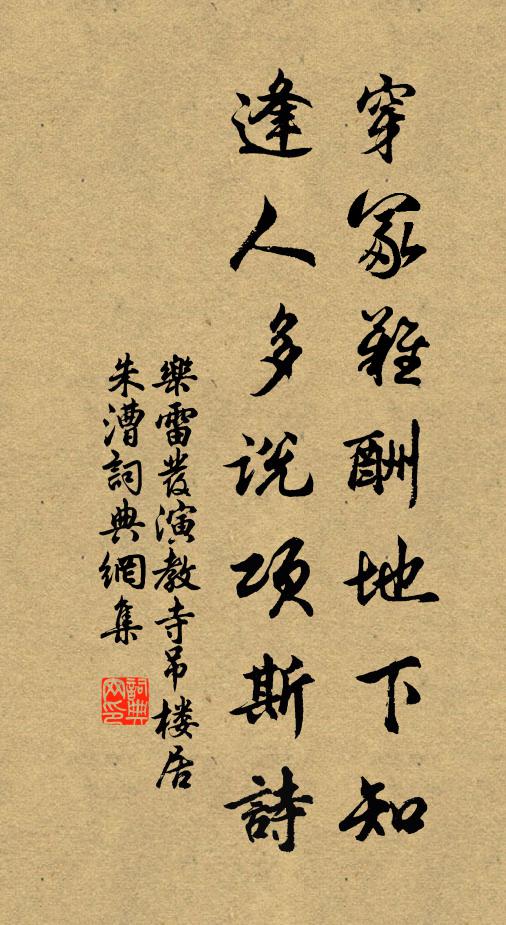 穿冢難酬地下知
逢人多說項斯詩
樂雷發演教寺吊楼居
朱漕詞典網集
詞典網印